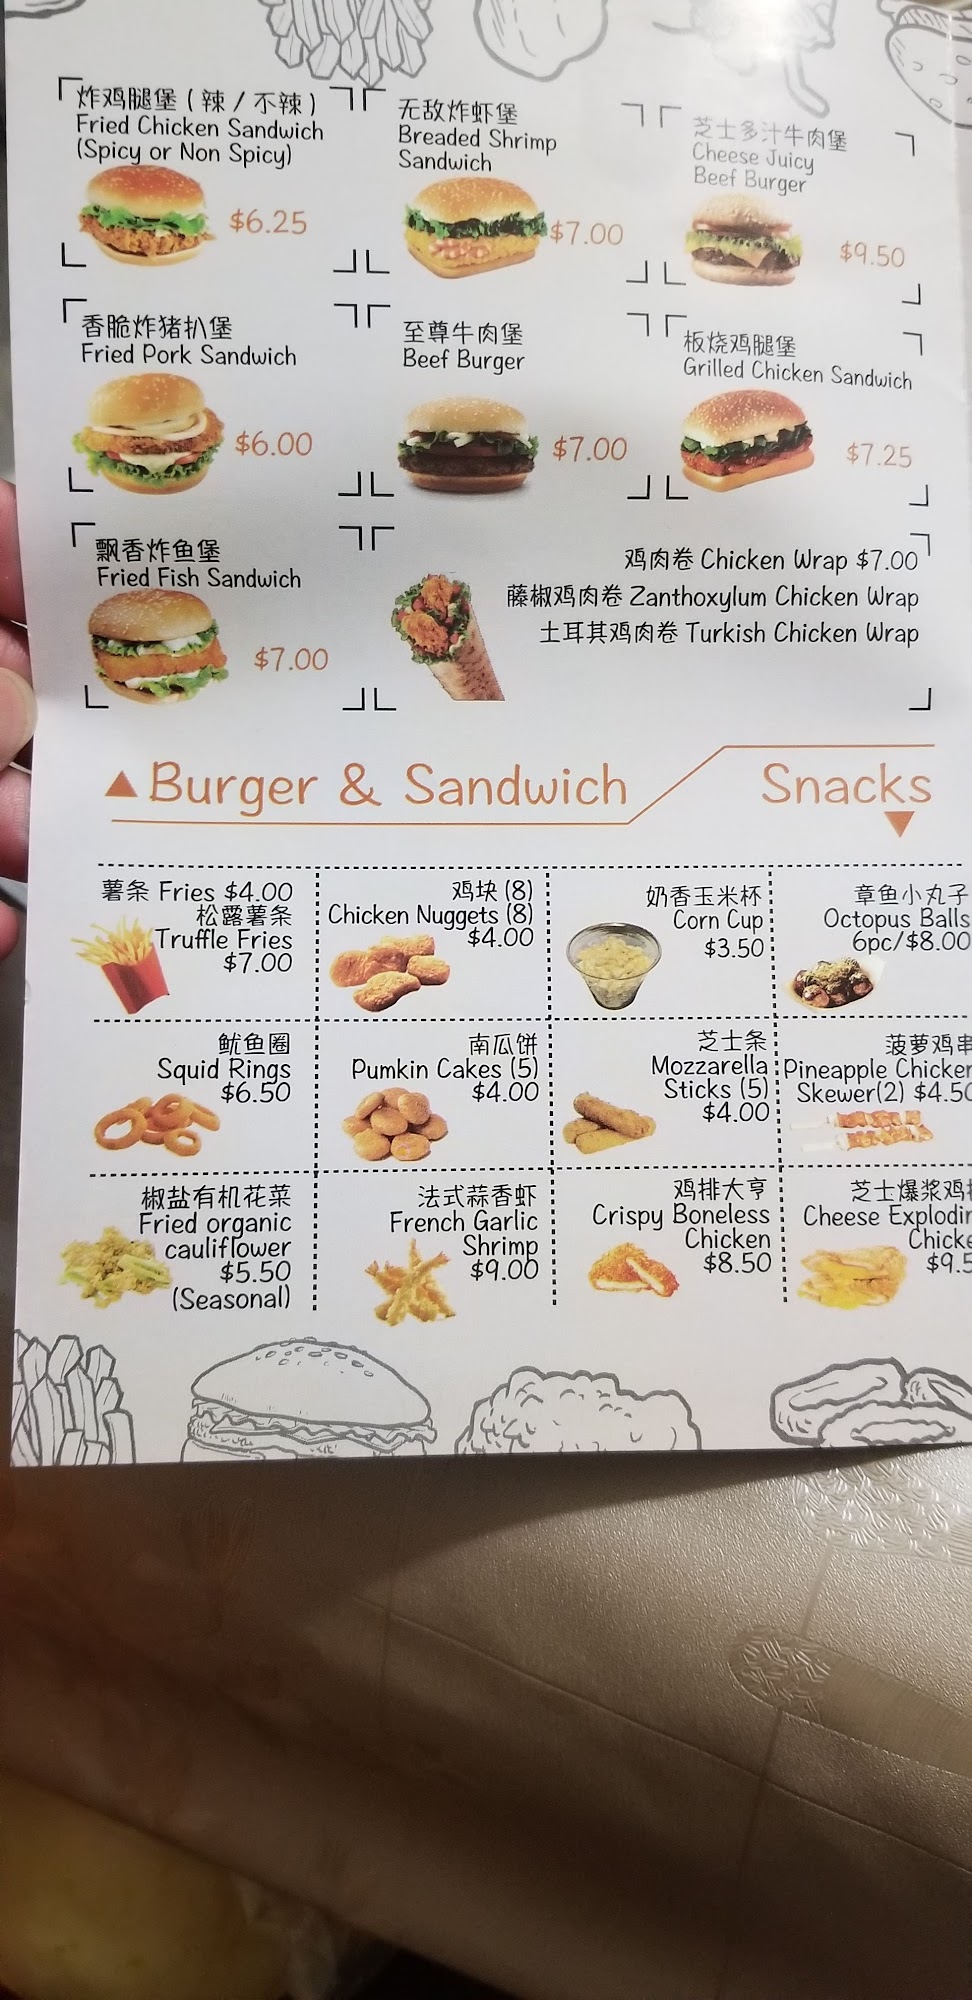 炸鸡腿堡 ( 辣 / 不辣 )
Fried Chicken Sandwich
(Spicy or Non Spicy)
$6.25
无敌炸虾堡
Breaded Shrimp
Sandwich
$7.00
芝士多汁牛肉堡
Cheese Juicy
Beef Burger
$9.50
香脆炸猪扒堡
Fried Pork Sandwich
$6.00
至尊牛肉堡
Beef Burger
$7.00
板烧鸡腿堡
Grilled Chicken Sandwich
$7.25
飘香炸鱼堡
Fried Fish Sandwich
$7.00
鸡肉卷 Chicken Wrap $7.00
藤椒鸡肉卷 Zanthoxylum Chicken Wrap
土耳其鸡肉卷 Turkish Chicken Wrap
Burger & Sandwich
Snacks
薯条 Fries $4.00
松露薯条
Truffle Fries
$7.00
鸡块 (8)
Chicken Nuggets (8)
$4.00
奶香玉米杯
Corn Cup
$3.50
章鱼小丸子
Octopus Balls
6pc/$8.00
鱿鱼圈
Squid Rings
$6.50
南瓜饼
Pumkin Cakes (5)
$4.00
芝士条
Mozzarella
Sticks (5)
$4.00
菠萝鸡串
Pineapple Chicken
Skewer(2) $4.50
椒盐有机花菜
Fried organic
cauliflower
$5.50
(Seasonal)
法式蒜香虾
French Garlic
Shrimp
$9.00
鸡排大亨
Crispy Boneless
Chicken
$8.50
芝士爆浆鸡
Cheese